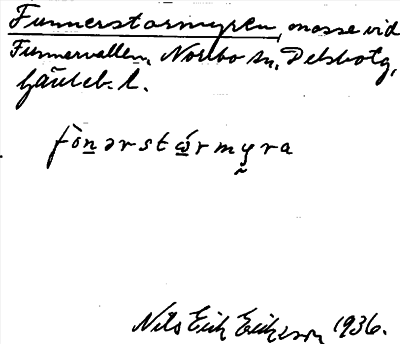 Funnerstormyren, mosse vid
Funnervallen, Norrbo sn, Delsbo tg,
Gävleb. l.
fònərstώrmyra
Nils Erik Eriksson 1936.